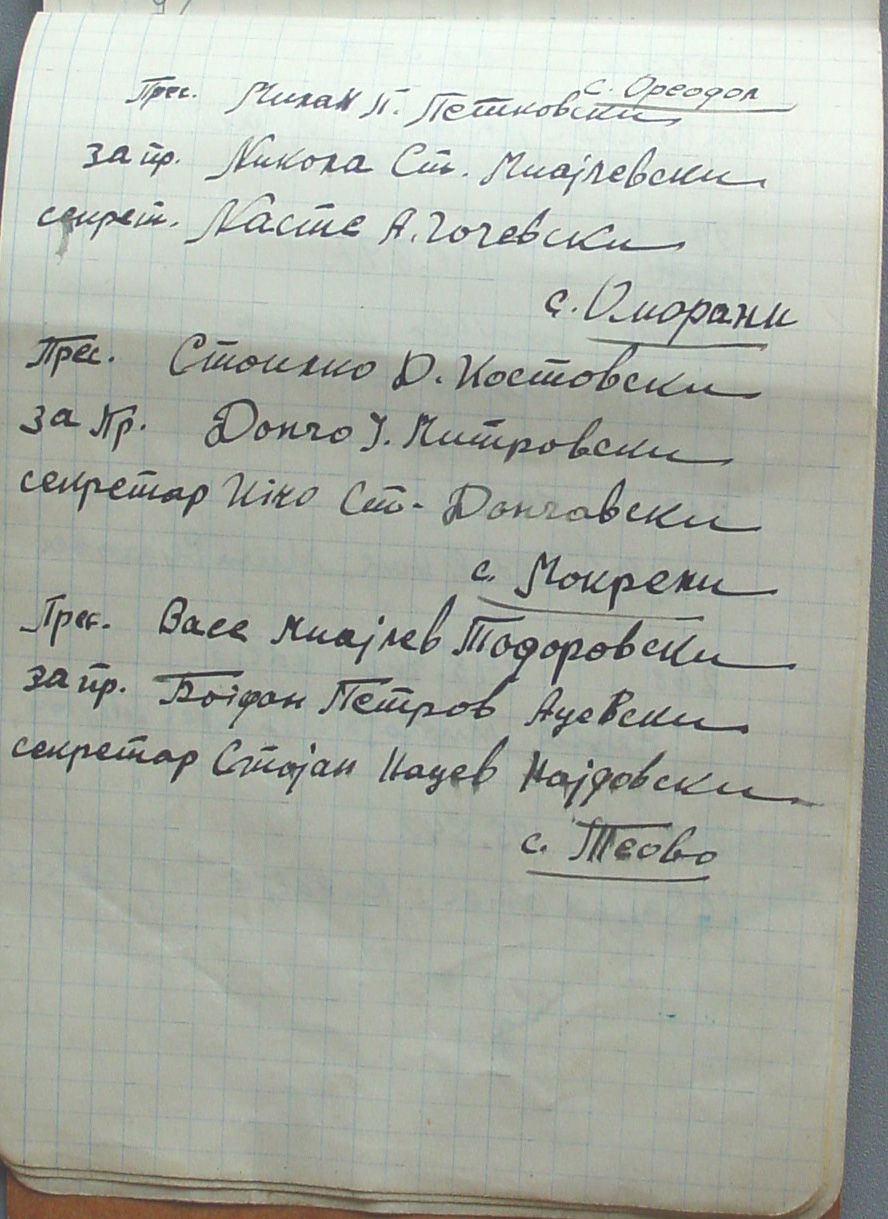 с. Ореодол
Прес. Милан П. Петковски
за пр. Никола Ст. Миајлевски
секрет. Насте А. Гочевски
с. Оморани
Прес. Стоилко Д. Костовски
за Пр. Дончо Ј. Митровски
секретар Кіко Ст. Дончовски
с. Мокрени
Прес. Васе Миајлев Тодоровски
за пр. Боіфан Петров Ацевски
секретар Стојан Нацев Најдовски
с. Теово